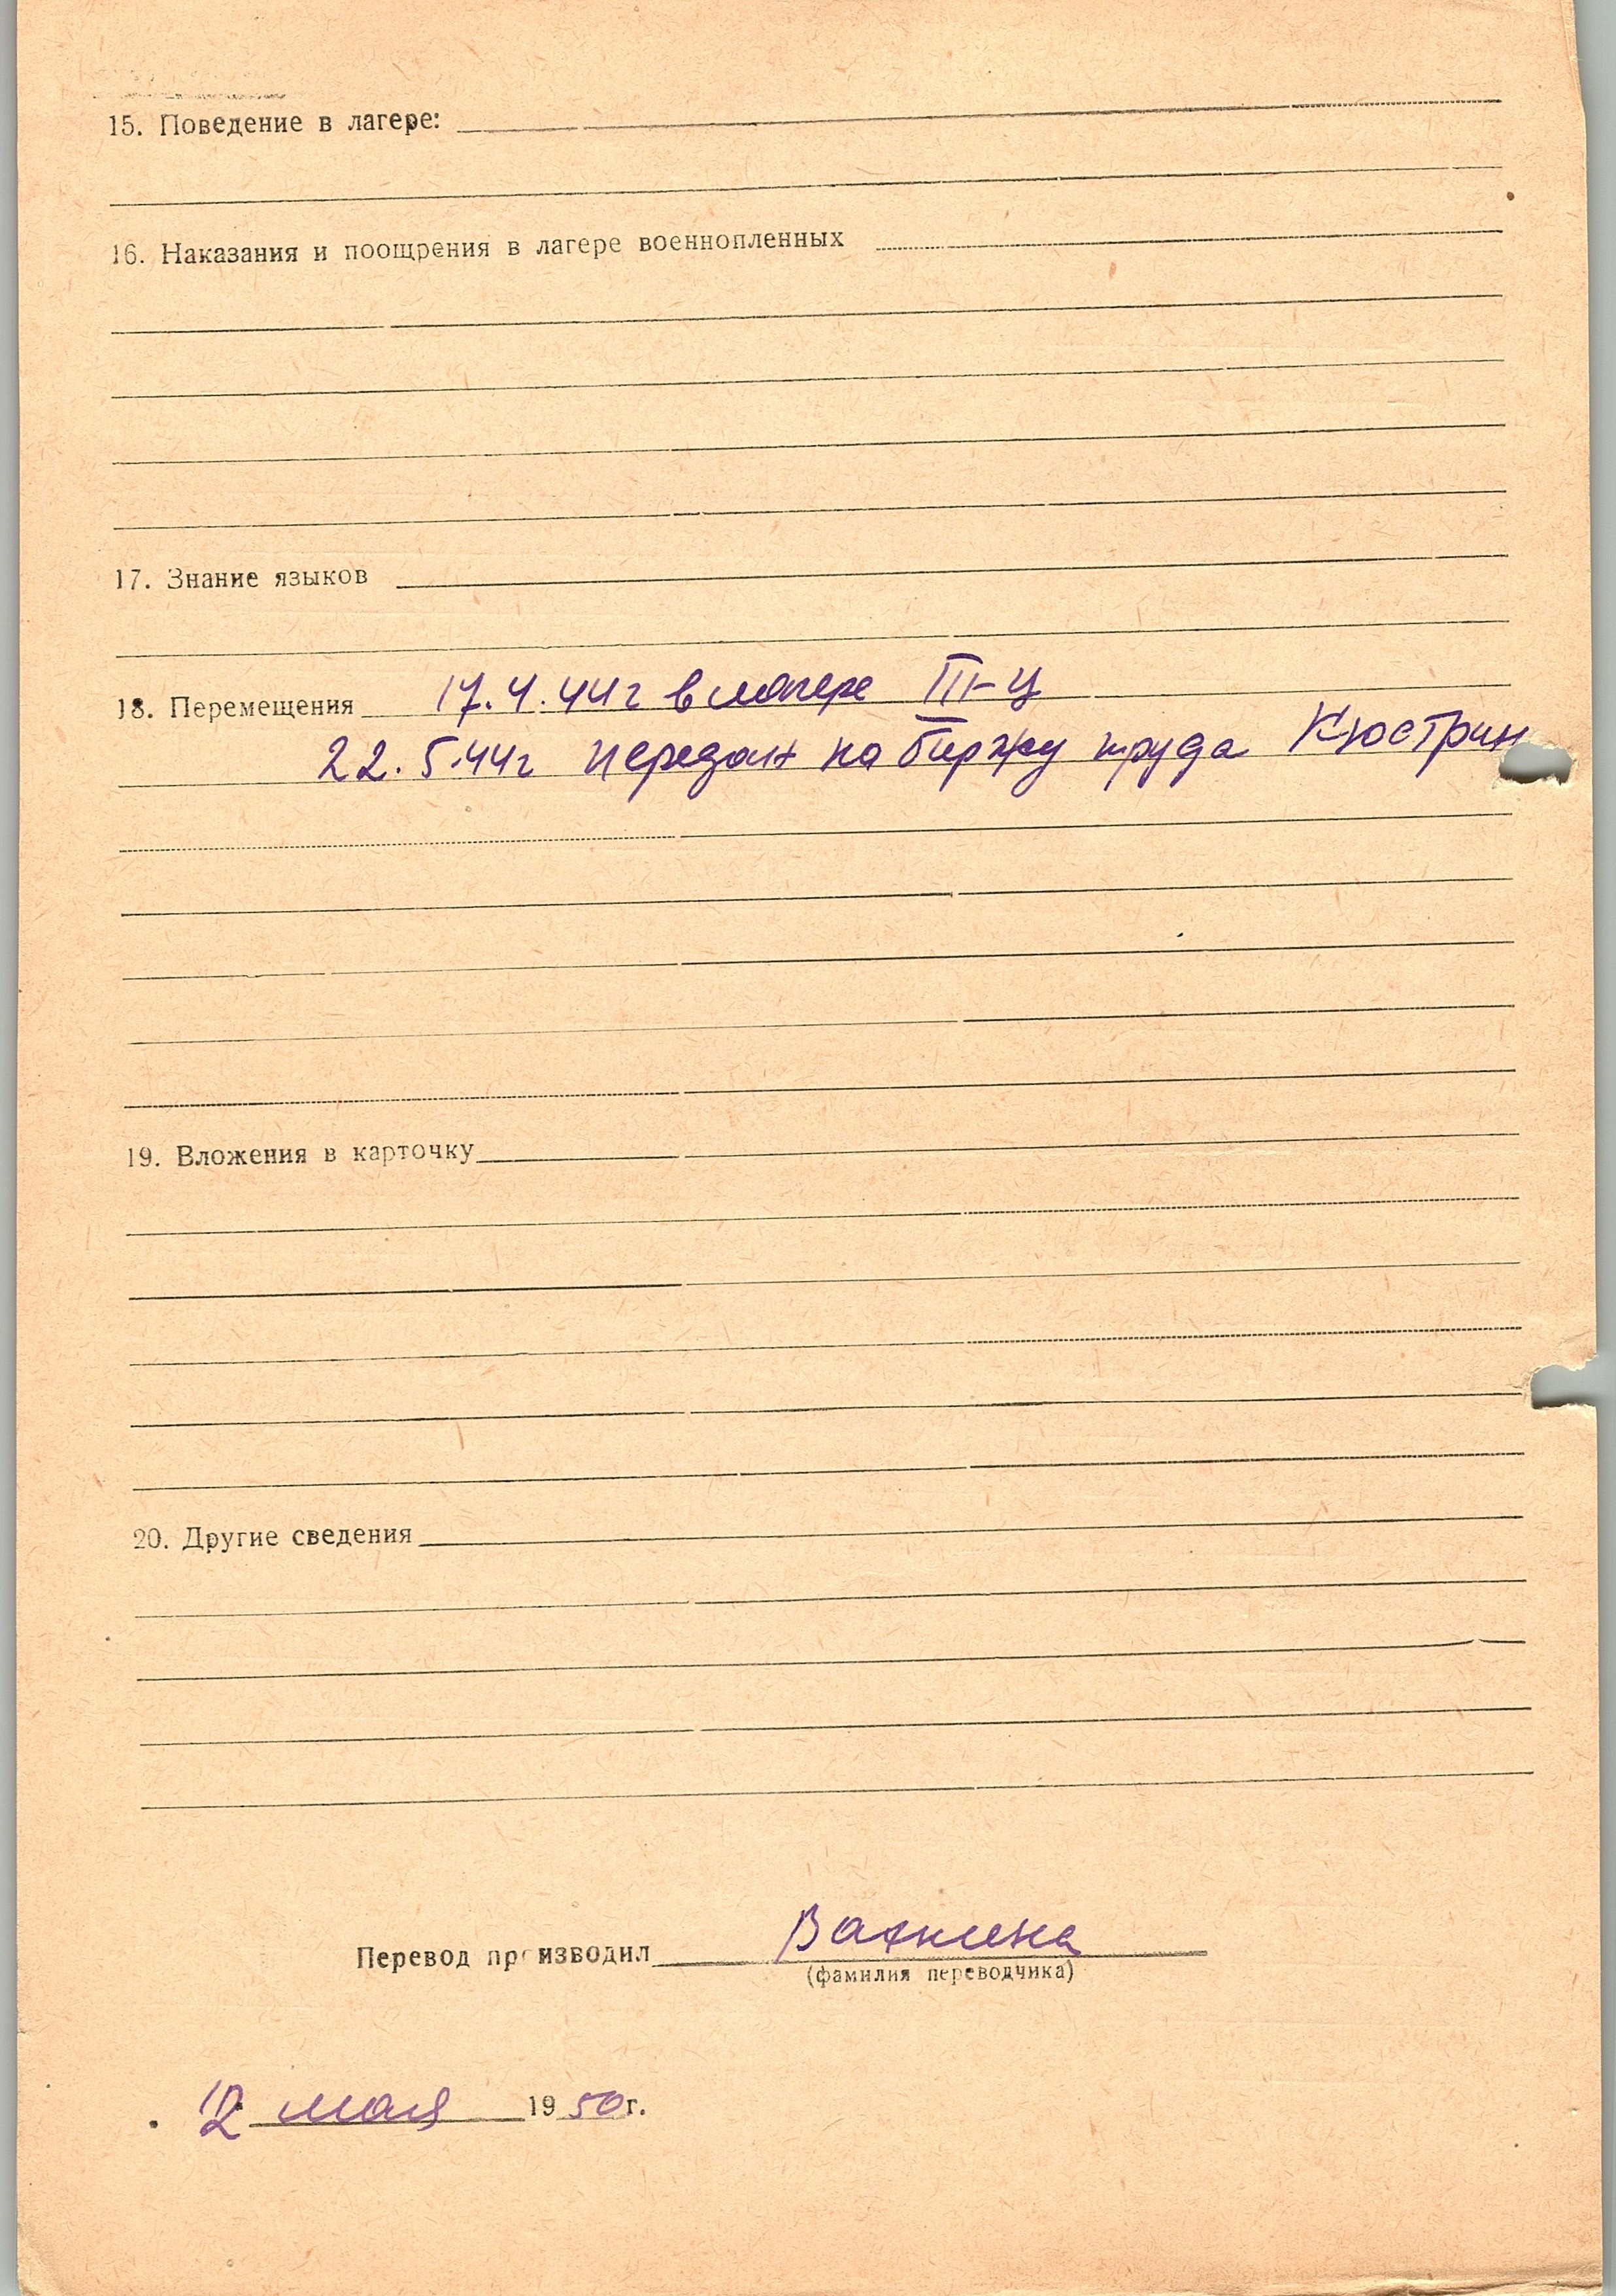 15. Поведение в лагере:
16. Наказания и поощрения в лагере военнопленных
17. Знание языков
18. Перемещения 17.4.44г в лагере III-Ц
22.5.44г передан на биржу труда Кюстрин
19. Вложения в карточку
20. Другие сведения
Перевод производил
(фамилия переводчика)
12 мая 1950г.